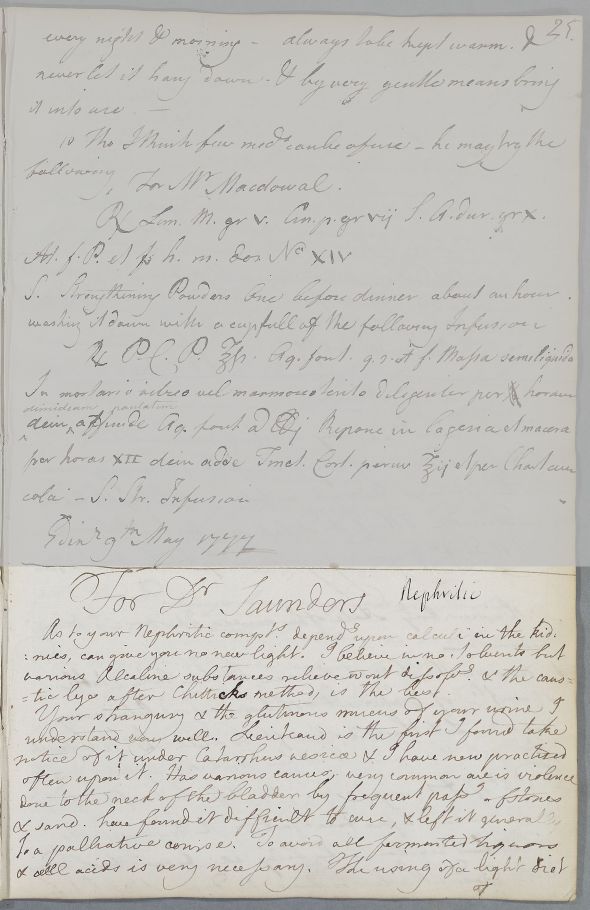 25.
every night & morning – always to be kept warm. &
never let it hang down – & by very gentle means bring
it into use. —
10 Tho I think few meds can be of use – he may try the
following, For Mr Macdowal.
℞ Lim. M. gr v. Cin. p. gr vij S. A. dur. gr x.
Ad. f. P. et h. m. dos No XIV
S. Strengthening Powders One before dinner about an hour.
washing it down with a cupfull of the following Infusion
℞ P. C. P. ℥ß. Aq. font. q. s. ft f. Massa semiliquida
In mortario vitreo vel marmoreo terito diligenter per horam
dimidiam paulatim
dein, affunde Aq. font ad ℔j Repone in Lagena et macera
per horas XII dein adde Tinct. Cort. peruv ℥ij et per Chartam
cola – S. Str. Infusion
Edinr 9th May 1777
For Dr Saunders Nephritic
As to your Nephritic compts. dependg. upon calculi in the kid:
:nies, can give you no new light. I believe in no solvents but
various Alcaline substances relieve wout dissolvg. & the caus=
=tic lye after Chitticks method, is the best.
Your strangury & the glutinous mucus of your urine I
understand you well. Lieutaud is the first I found take
notice of it under Catarrhus vesicæ & I have now practised
often upon it. Has various causes, very common are is violence
done to the neck of the bladder by frequent passg. of stones
& sand. have found it difficult to cure, & left it generally
to a palliative course. To avoid all fermented liquors
& all acids is very necessary. The using of a light diet
of